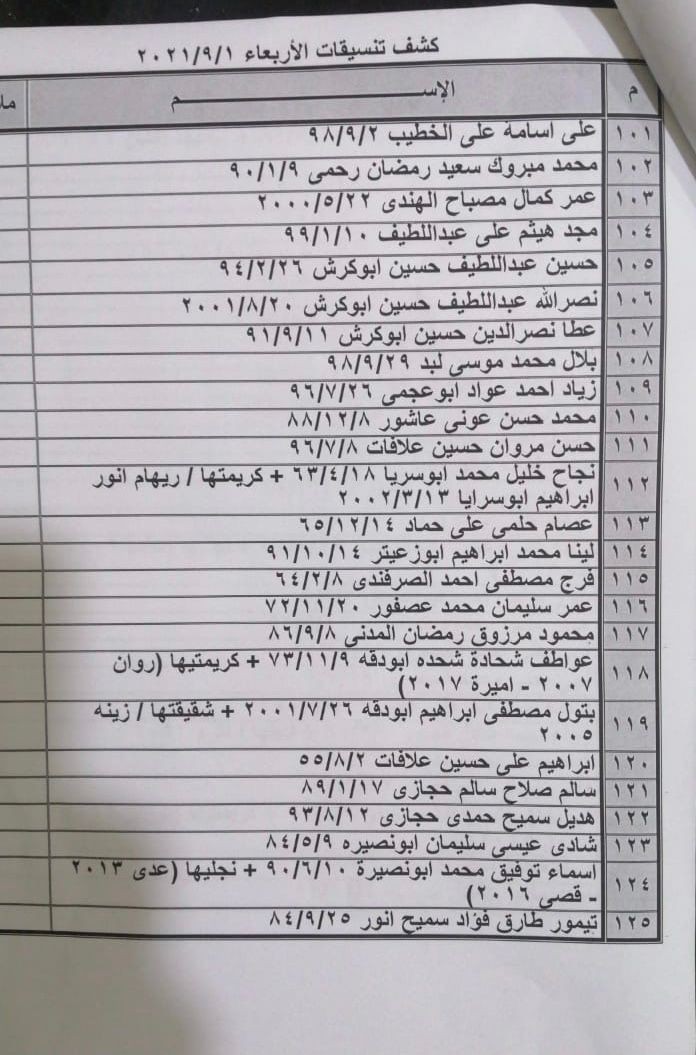 كشف تنسيقات الأربعاء ٢٠٢١/٩/١
م الإســـــــــــــــــم
١٠١ على اسامة على الخطيب ٩٨/٩/٢
١٠٢ محمد مبروك سعيد رمضان رحمى ٩٠/١/٩
١٠٣ عمر كمال مصباح الهندى ٢٠٠٠/٥/٢٢
١٠٤ مجد هيثم على عبداللطيف ٩٩/١/١٠
١٠٥ حسين عبداللطيف حسين ابوكرش ٩٤/٢/٢٦
١٠٦ نصرالله عبداللطيف حسين ابوكرش ٢٠٠١/٨/٢٠
١٠٧ عطا نصرالدين حسين ابوكرش ٩١/٩/١١
١٠٨ بلال محمد موسى لبد ٩٨/٩/٢٩
١٠٩ زياد احمد عواد ابوعجمى ٩٦/٧/٢٦
١١٠ محمد حسن عونى عاشور ٨٨/١٢/٨
١١١ حسن مروان حسين علافات ٩٦/٧/٨
١١٢ نجاح خليل محمد ابوسريا ٦٣/٤/١٨ + كريمتها / ريهام انور
ابراهيم ابوسرايا ٢٠٠٢/٣/١٣
١١٣ عصام حلمى على حماد ٦٥/١٢/١٤
١١٤ لينا محمد ابراهيم ابوزعيتر ٩١/١٠/١٤
١١٥ فرج مصطفى احمد الصرفندى ٦٤/٢/٨
١١٦ عمر سليمان محمد عصفور ٧٢/١١/٢٠
١١٧ محمود مرزوق رمضان المدنى ٨٦/٩/٨
١١٨ عواطف شحادة شحده ابودقه ٧٣/١١/٩ + كريمتيها (روان
٢٠٠٧ - اميرة ٢٠١٧)
١١٩ بتول مصطفى ابراهيم ابودقه ٢٠٠١/٧/٢٦ + شقيقتها / زينه
٢٠٠٥
١٢٠ ابراهيم على حسين علافات ٥٥/٨/٢
١٢١ سالم صلاح سالم حجازى ٨٩/١/١٧
١٢٢ هديل سميح حمدى حجازى ٩٣/٨/١٢
١٢٣ شادى عيسى سليمان ابونصيره ٨٤/٥/٩
١٢٤ اسماء توفيق محمد ابونصيرة ٩٠/٦/١٠ + نجليها (عدى ٢٠١٣
- قصى ٢٠١٦)
١٢٥ تيمور طارق فؤاد سميح انور ٨٤/٩/٢٥